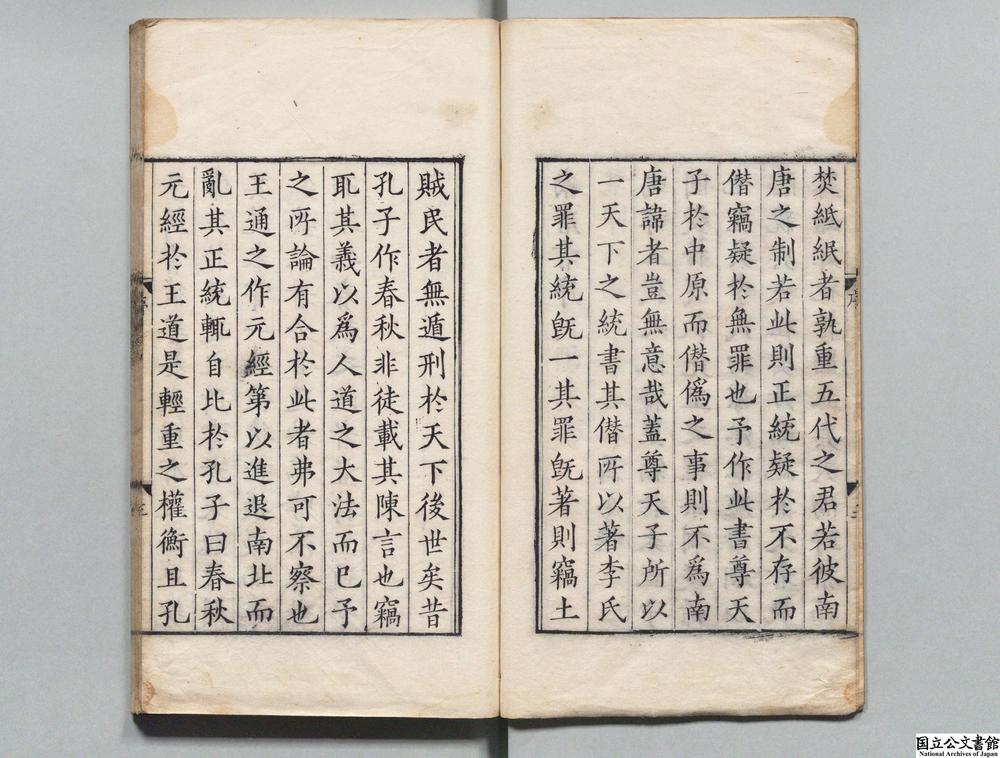 焚紙紙者孰重五代之君若彼南
唐之制若此則正統疑於不存而
僭竊疑於無罪也予作此書尊天
子於中原而僭僞之事則不爲南
唐諱者豈無意哉蓋尊天子所以
一天下之統書其僭所以著李氏
之罪其統旣一其罪旣著則竊土
賊民者無遁刑於天下後世矣昔
孔子作春秋非徒載其陳言也竊
取其義以爲人道之大法而已予
之所論有合於此者弗可不察也
王通之作元經第以進退南北而
亂其正統輒自比於孔子曰春秋
元經於王道是輕重之權衡且孔
序
二
三
国立公文書館
National Archives of Japan